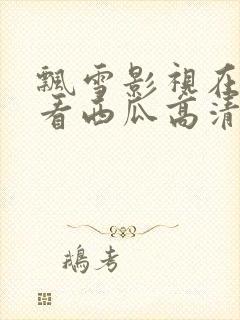 飄雪影視在
看西瓜高清
鵝考